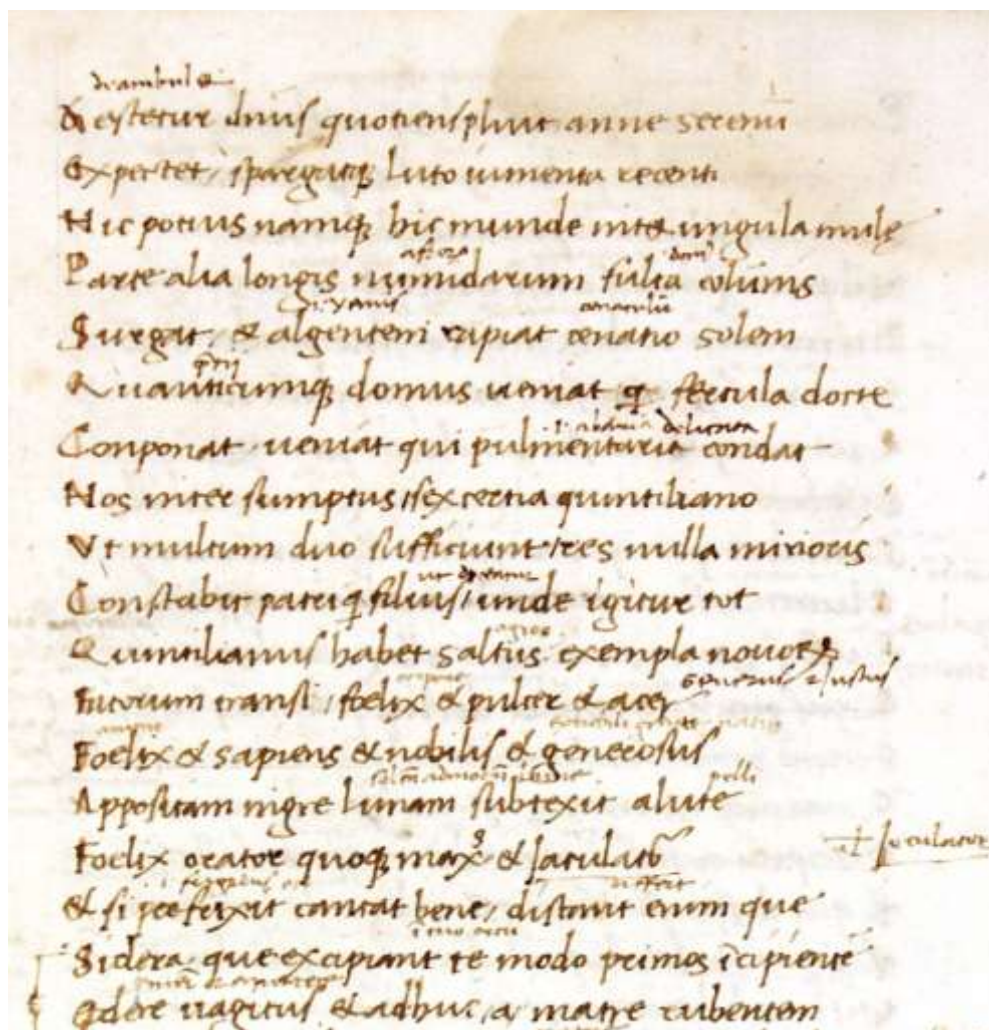 deambulet
Gestetur dnus quotiens pluit anne serenū
Expectet spargatq; luto iumenta recenti
Hic potius namq; hic munde nitet ungula mulę
Parte alia longis numidarum fulta colūnis
cenaculū
Surgat & algentem rapiat cenatio solem
p̄tij
Quanticumq; domus ueniat q fercula docte
delicata
Conponat ueniat qui pulmentaria condat
Hos inter sumptus sextertia quintiliano
Vt multum duo sufficiunt res nulla minoris
Constabit patri q̄ filius unde igitur tot
agros
Quintilianus habet saltus exempla nouorꝝ
Fatorum transi foelix & pulcer & acer
Foelix & sapiens & nobilis & generosus
pelli
Appositam nigre lunam subtexit alute
Foelix orator quoq; max & Iaculator
ł Ioculator
differt
& si perfrixit cantat bene distant enim que
Sidera que excipiant te modo primos īcipientē
Edere uagitus & adhuc a matre rubentem